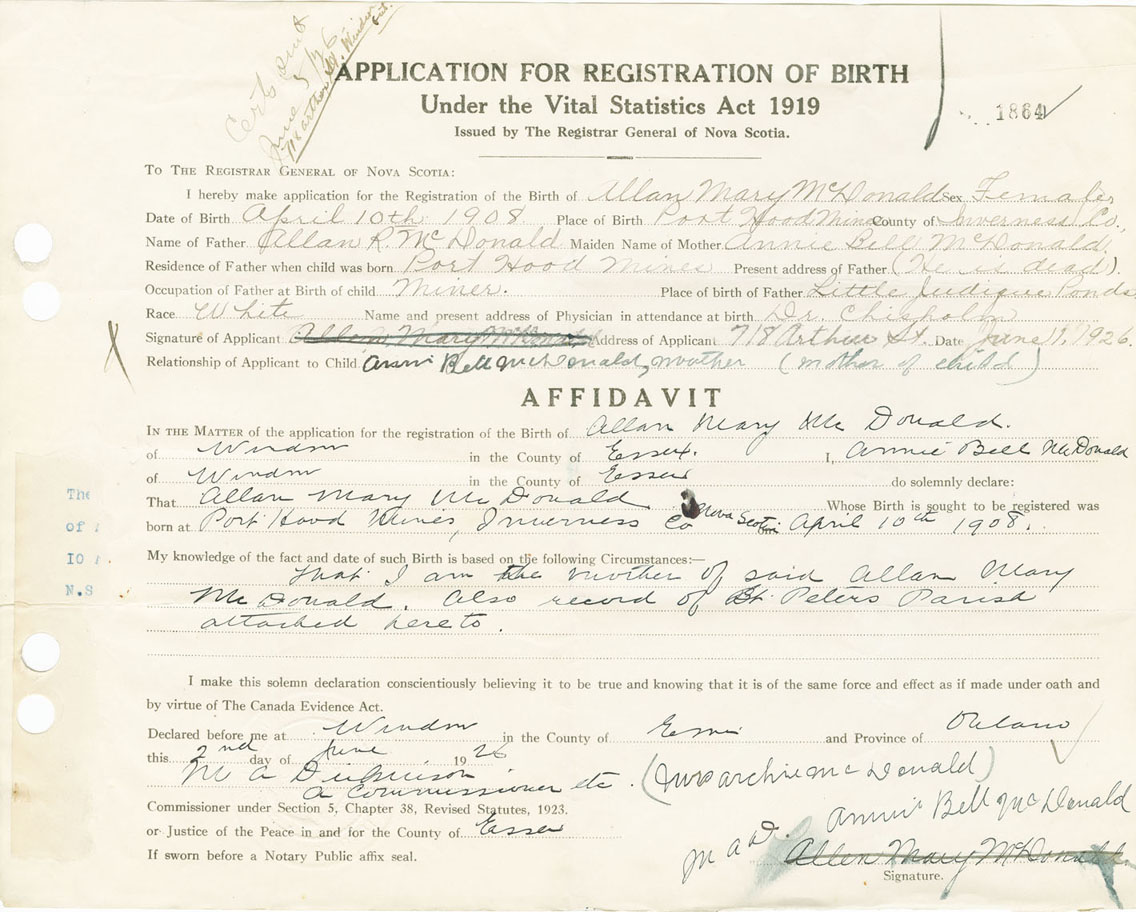 Certs sent
June 5/26
718 Arthur St. Windsor
Ont.
APPLICATION FOR REGISTRATION OF BIRTH
Under the Vital Statistics Act 1919
Issued by The Registrar General of Nova Scotia.
1864
To The Registrar General of Nova Scotia:
I hereby make application for the Registration of the Birth of Allan Mary McDonald Sex Female
Date of Birth April 10th 1908 Place of Birth Port Hood Mines County of Inverness Co.,
Name of Father Allan R. McDonald Maiden Name of Mother Annie Bell McDonald
Residence of Father when child was born Port Hood Mines Present address of Father (He is dead).
Occupation of Father at Birth of child Miner. Place of birth of Father Little Judique Ponds
Race White Name and present address of Physician in attendance at birth Dr. Chisholm
Signature of Applicant Allen Mary McDonald Address of Applicant 718 Arthur St. Date June 1, 1926.
Relationship of Applicant to Child Annie Bell McDonald, mother (mother of child)
AFFIDAVIT
In the Matter of the application for the registration of the Birth of Allan Mary McDonald.
of Windsor in the County of Essex. I, Annie Bell McDonald
of Windsor in the County of Essex do solemnly declare:
That Allan Mary McDonald Whose Birth is sought to be registered was
born at Port Hood Mines, Inverness Co Nova Scotia April 10th 1908.
My knowledge of the fact and date of such Birth is based on the following Circumstances:—
That I am the mother of said Allan Mary
McDonald. Also record of St. Peters Parish
attached hereto.
The
of
IO
N.S
I make this solemn declaration conscientiously believing it to be true and knowing that it is of the same force and effect as if made under oath and
by virtue of The Canada Evidence Act.
Declared before me at Windsor in the County of Essex and Province of Ontario
this 2nd day of June 1926
M A Dickinson
a Commissioner etc. (Mrs Archie McDonald)
Commissioner under Section 5, Chapter 38, Revised Statutes, 1923.
Annie Bell McDonald
or Justice of the Peace in and for the County of Essex
M A D. Allen Mary McDonald
If sworn before a Notary Public affix seal.
Signature.